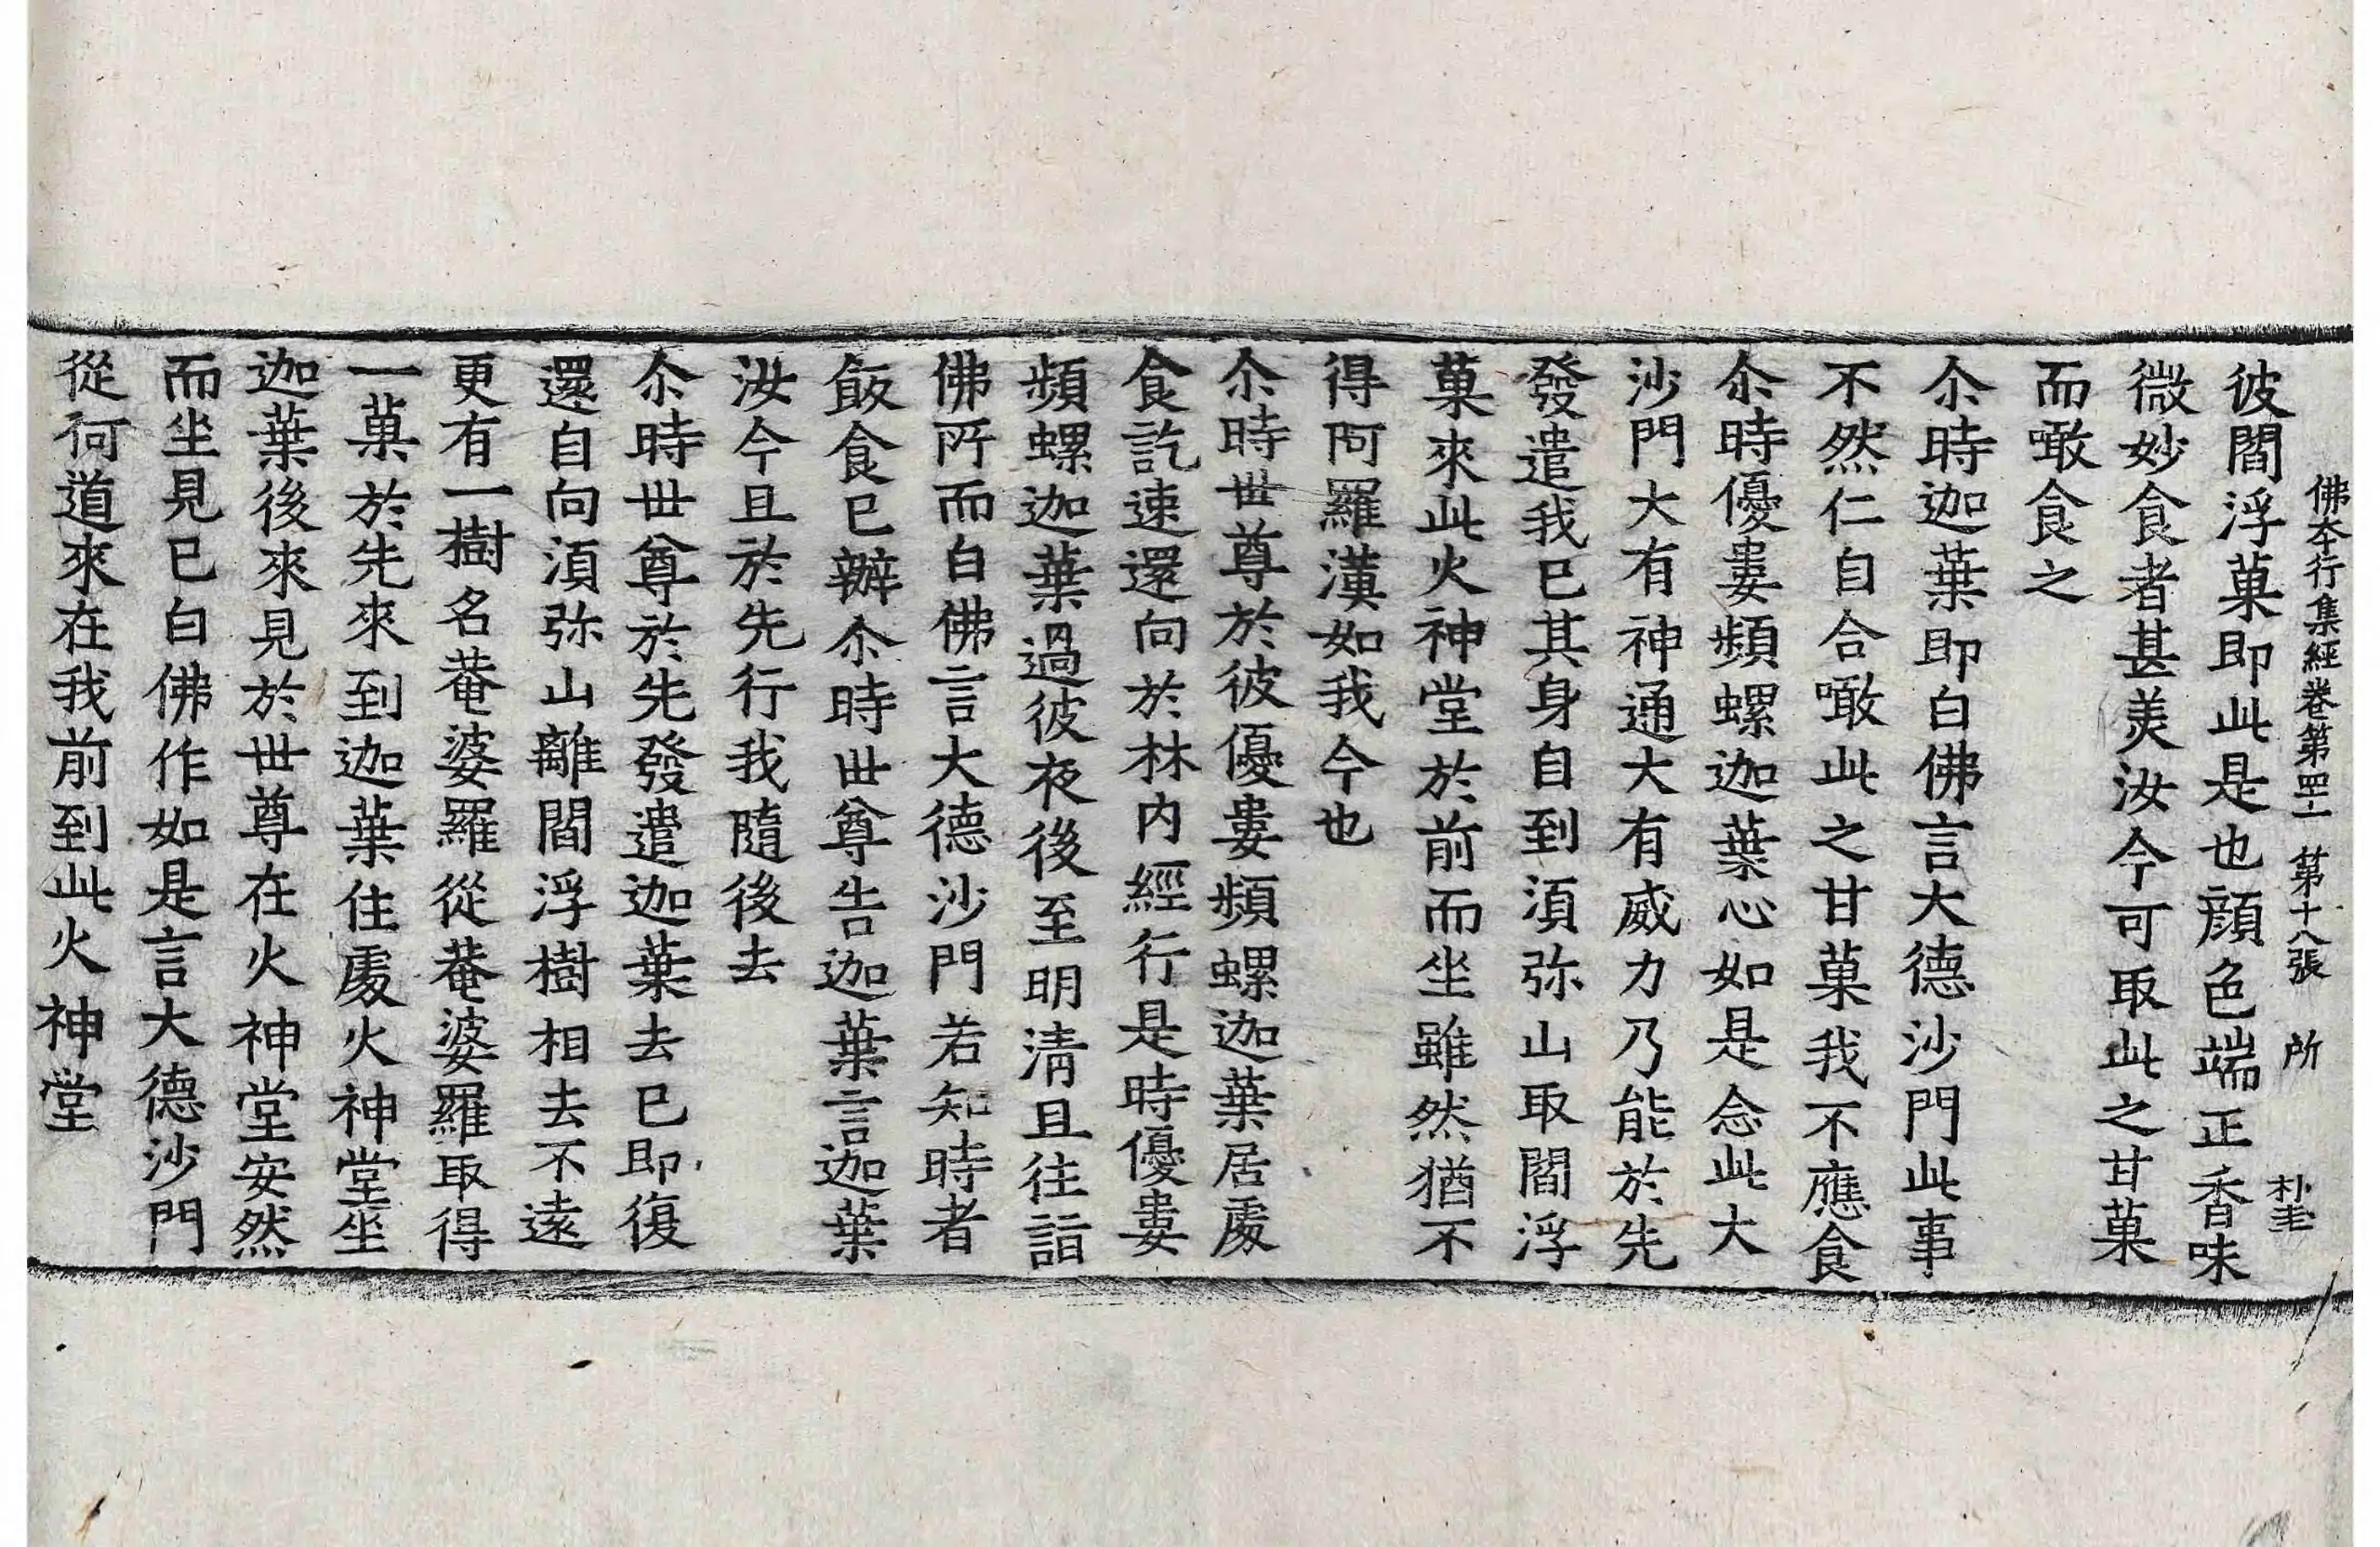 佛本行集經卷第四十一 第十八張 所
彼閻浮菓即此是也顔色端正香味
微妙食者甚美汝今可取此之甘菓
而噉食之
尒時迦葉即白佛言大德沙門此事
不然仁自合噉此之甘菓我不應食
尒時優婁頻螺迦葉心如是念此大
沙門大有神通大有威力乃能於先
發遣我已其身自到湏弥山取閻浮
菓來此火神堂於前而坐雖然猶不
得阿羅漢如我今也
尒時世尊於彼優婁頻螺迦葉居處
食訖速還向於林内經行是時優婁
頻螺迦葉過彼夜後至明清旦往詣
佛所而白佛言大德沙門若知時者
飯食已辦尒時世尊告迦葉言迦葉
汝今且於先行我隨後去
尒時世尊於先發遣迦葉去已即復
還自向湏弥山離閻浮樹相去不遠
更有一樹名菴婆羅從菴婆羅取得
一菓於先來到迦葉住處火神堂坐
迦葉後來見於世尊在火神堂安然
而坐見已白佛作如是言大德沙門
從何道來在我前到此火神堂